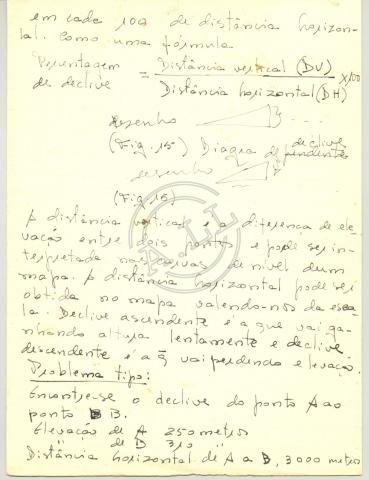 em cada 100 de distância horizon-
tal. Como uma fórmula
Percentagem de declive = Distância vertical (DV) / Distância horizontal (DH) x100
desenho
(Fig. 15) Diagra de declive
desenho
(Fig. 16)
A distância vertical é a diferença de ele-
vação entre dois pontos e pode ser in-
terpretada nas curvas de nivel dum
mapa. A distância horizontal pode ser
obtida no mapa valendo-nos da esca-
la. Declive ascendente é a que vai ga-
nhando altura lentamente e declive
descendente é a q̃ vai perdendo elevação.
Problema tipo:
Encontre-se o declive do ponto A ao
ponto B.
Elevação de A 250 metros
" de B 310 "
Distância horizontal de A a B, 3000 metros